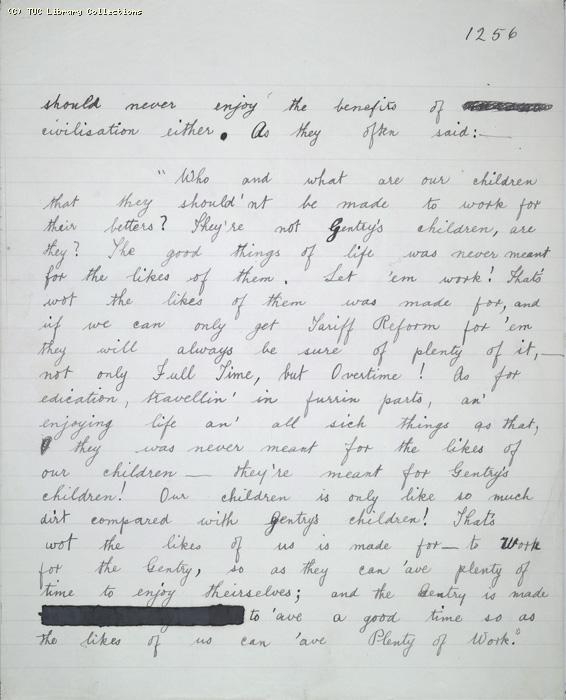 (C) TUC Library Collections
1256
should never enjoy the benefits of
civilisation either. As they often said:—
"Who and what are our children
that they should'nt be made to work for
their betters? They're not Gentry's children, are
they? The good things of life was never meant
for the likes of them. Let 'em work! That's
wot the likes of them was made for, and
if we can only get Tariff Reform for 'em
they will always be sure of plenty of it,—
not only Full Time, but Overtime! As for
edication, travellin' in furrin parts, an'
enjoying life an' all sich things as that,
they was never meant for the likes of
our children — they're meant for Gentry's
children! Our children is only like so much
dirt compared with Gentry's children! That's
wot the likes of us is made for — to Work
for the Gentry, so as they can 'ave plenty of
time to enjoy theirselves; and the Gentry is made
to 'ave a good time so as
the likes of us can 'ave Plenty of Work."